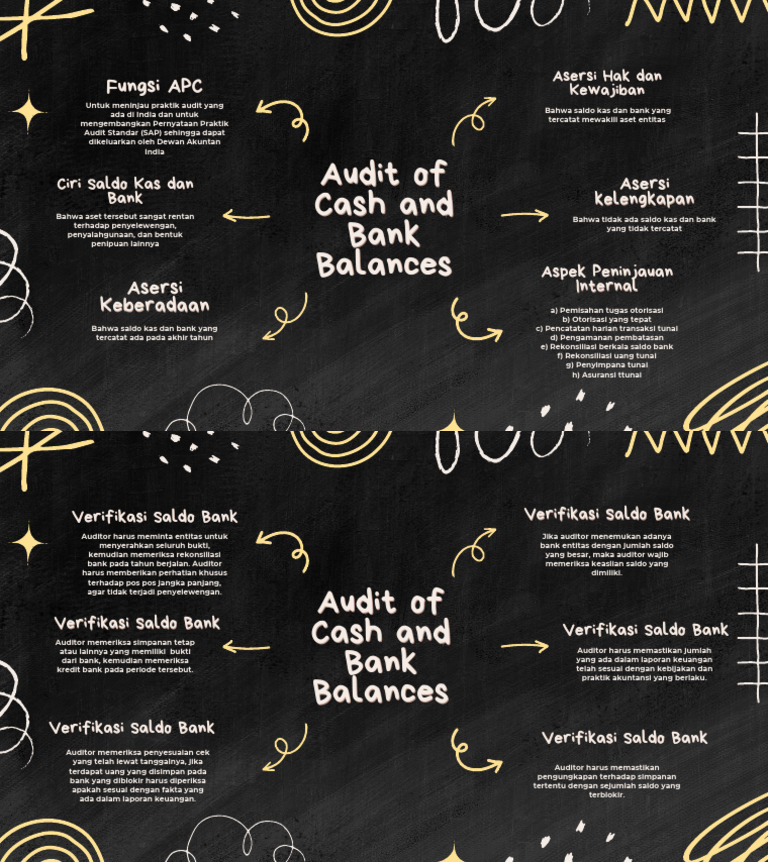 Fungsi APC
Untuk meninjau praktik audit yang
ada di India dan untuk
mengembangkan Pernyataan Praktik
Audit Standar (SAP) sehingga dapat
dikeluarkan oleh Dewan Akuntan
India
Ciri Saldo Kas dan
Bank
Bahwa aset tersebut sangat rentan
terhadap penyelewengan,
penyalahgunaan, dan bentuk
penipuan lainnya
Asersi
Keberadaan
Bahwa saldo kas dan bank yang
tercatat ada pada akhir tahun
Audit of
Cash and
Bank
Balances
Asersi Hak dan
Kewajiban
Bahwa saldo kas dan bank yang
tercatat mewakili aset entitas
Asersi
kelengkapan
Bahwa tidak ada saldo kas dan bank
yang tidak tercatat
Aspek Peninjauan
Internal
a) Pemisahan tugas otorisasi
b) Otorisasi yang tepat
c) Pencatatan harian transaksi tunai
d) Pengamanan pembatasan
e) Rekonsiliasi berkala saldo bank
f) Rekonsiliasi uang tunai
g) Penyimpana tunai
h) Asuransi ttunai
Verifikasi Saldo Bank
Auditor harus meminta entitas untuk
menyerahkan seluruh bukti,
kemudian memeriksa rekonsiliasi
bank pada tahun berjalan. Auditor
harus memberikan perhatian khusus
terhadap pos pos jangka panjang,
agar tidak terjadi penyelewengan.
Verifikasi Saldo Bank
Auditor memeriksa simpanan tetap
atau lainnya yang memiliki bukti
dari bank, kemudian memeriksa
kredit bank pada periode tersebut.
Verifikasi Saldo Bank
Auditor memeriksa penyesuaian cek
yang telah lewat tanggalnya, jika
terdapat uang yang disimpan pada
bank yang diblokir harus diperiksa
apakah sesuai dengan fakta yang
ada dalam laporan keuangan.
Audit of
Cash and
Bank
Balances
Verifikasi Saldo Bank
Jika auditor menemukan adanya
bank entitas dengan jumlah saldo
yang besar, maka auditor wajib
memeriksa keaslian saldo yang
dimiliki.
Verifikasi Saldo Bank
Auditor harus memastikan jumlah
yang ada dalam laporan keuangan
telah sesuai dengan kebijakan dan
praktik akuntansi yang berlaku.
Verifikasi Saldo Bank
Auditor harus memastikan
pengungkapan terhadap simpanan
tertentu dengan sejumlah saldo yang
terblokir.